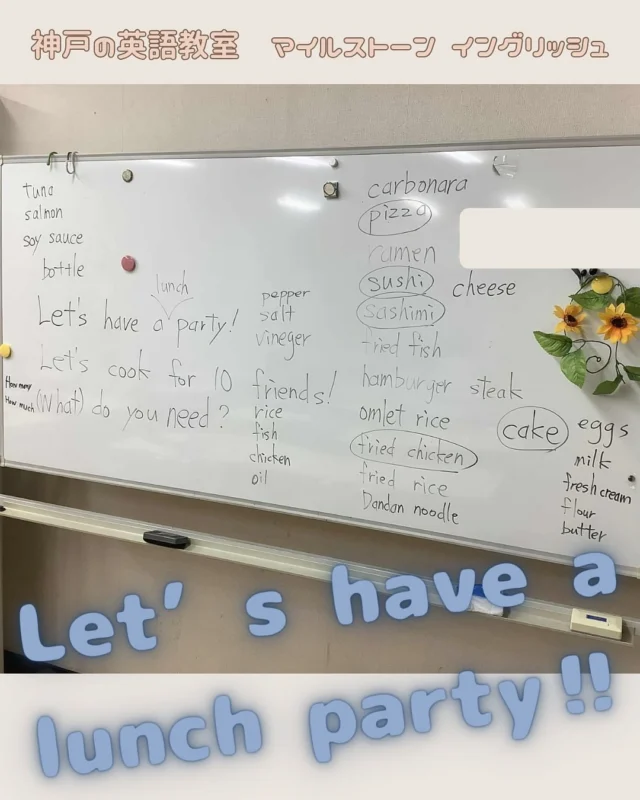 神戸の英語教室 マイルストーン イングリッシュ
tuna
salmon
soy sauce
bottle
lunch
Let's have a party!
Let's cook for 10 friends!
How many
How much
(What) do you need?
pepper
salt
vineger
rice
fish
chicken
oil
carbonara
pizza
ramen
sushi
cheese
sashimi
fried fish
hamburger steak
omlet rice
fried chicken
fried rice
Dandan noodle
cake
eggs
milk
fresh cream
flour
butter
Let's have a
lunch party!!